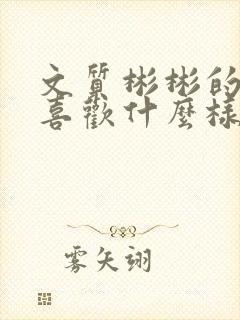 文質彬彬的
喜歡什麼樣
雾矢翊